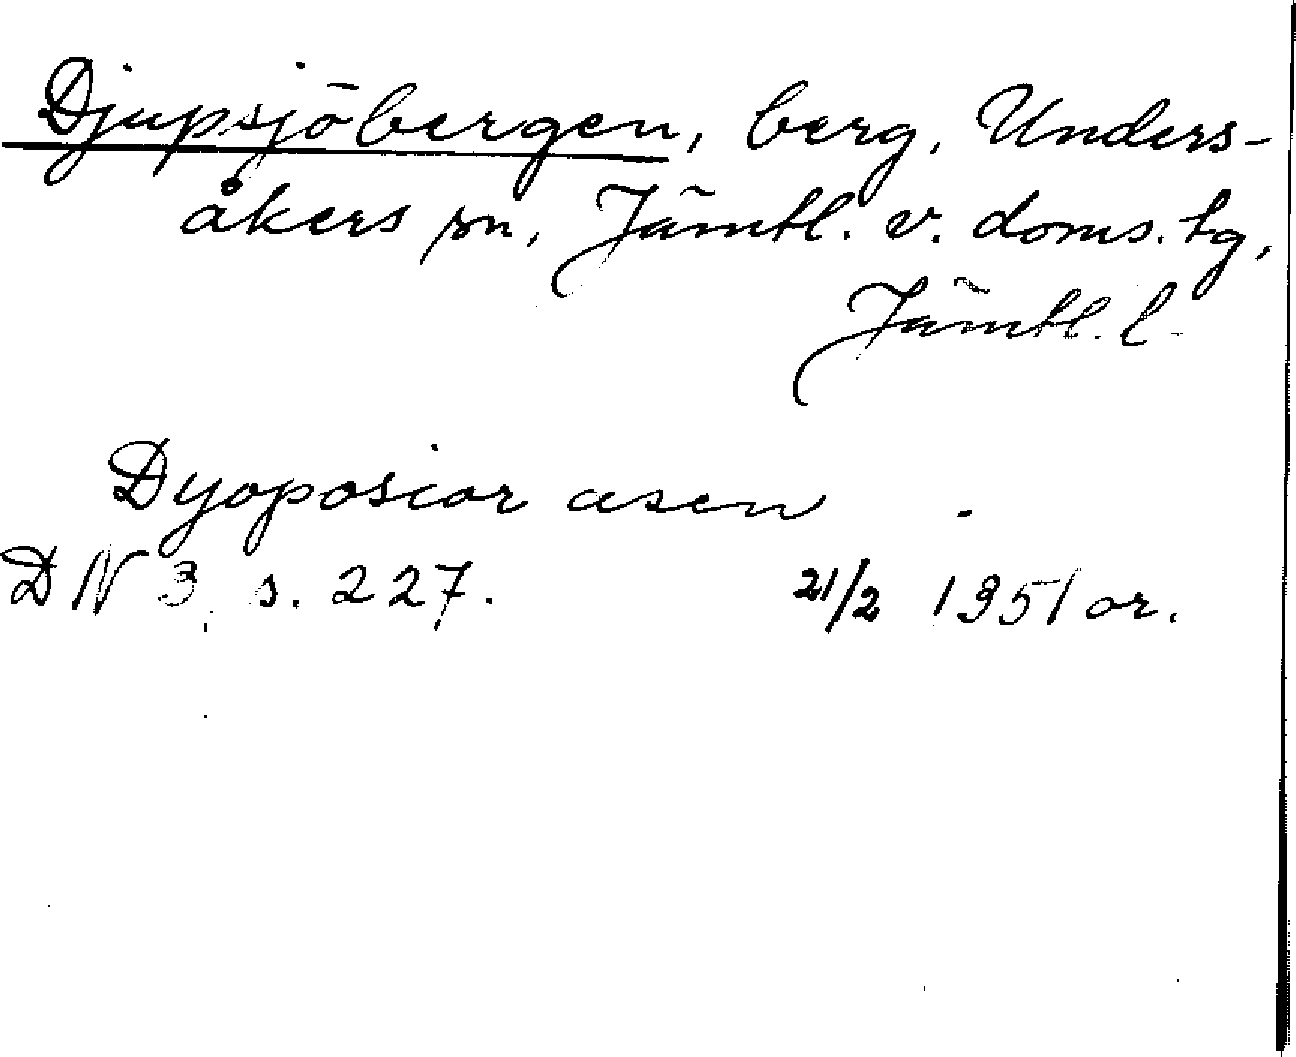 Djupsjöbergen, berg, Unders-
åkers sn, Jämtl. v. doms. tg,
Jämtl. l.
Dyoposior asen .
DN 3 s. 227. 21/2 1351 or.